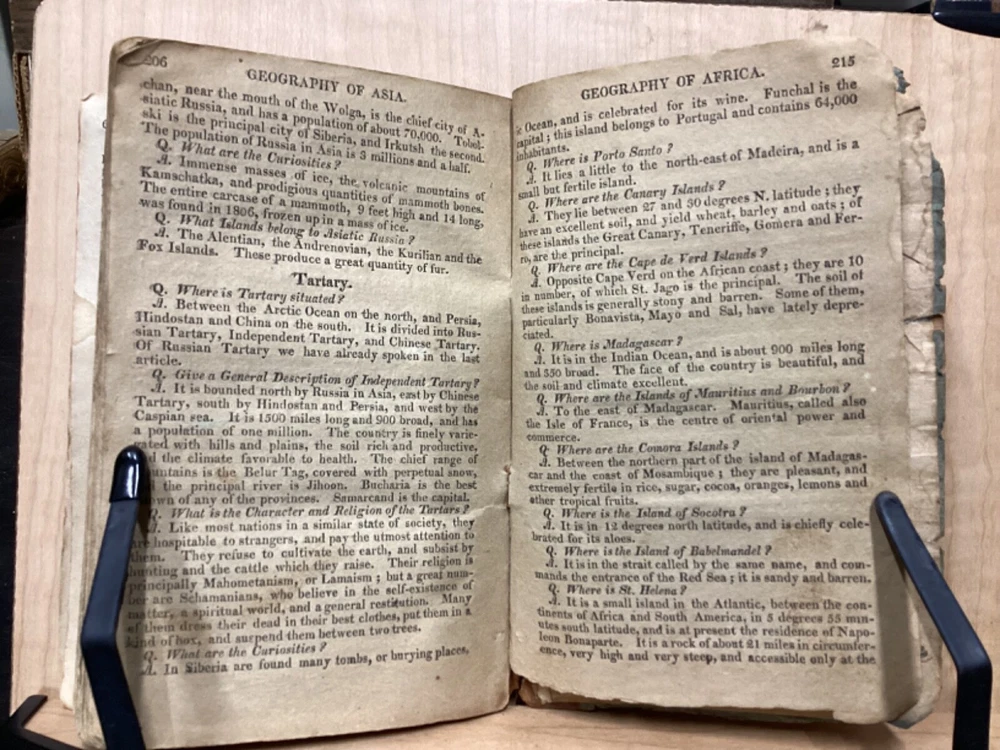 206
GEOGRAPHY OF ASIA.
chan, near the mouth of the Wolga, is the chief city of A-
siatic Russia, and has a population of about 70,000. Tobol-
ski is the principal city of Siberia, and Irkutsh the second.
The population of Russia in Asia is 9 millions and a half.
Q. What are the Curiosities?
A. Immense masses of ice, the volcanic mountains of
Kamschatka, and prodigious quantities of mammoth bones.
The entire carcase of a mammoth, 9 feet high and 14 long,
was found in 1806, frozen up in a mass of ice.
Q. What Islands belong to Asiatic Russia?
A. The Alentian, the Andrenovian, the Kurilian and the
Fox Islands. These produce a great quantity of fur.
Tartary.
Q. Where is Tartary situated?
A. Between the Arctic Ocean on the north, and Persia,
Hindostan and China on the south. It is divided into Rus-
sian Tartary, Independent Tartary, and Chinese Tartary.
Of Russian Tartary we have already spoken in the last
article.
Q. Give a General Description of Independent Tartary?
A. It is bounded north by Russia in Asia, east by Chinese
Tartary, south by Hindostan and Persia, and west by the
Caspian sea. It is 1500 miles long and 900 broad, and has
a population of one million. The country is finely varie-
gated with hills and plains, the soil rich and productive,
the climate favorable to health. The chief range of
untains is the Belur Tag, covered with perpetual snow,
the principal river is Jihoon. Bucharia is the best
own of any of the provinces. Samarcand is the capital.
Q. What is the Character and Religion of the Tartars?
A. Like most nations in a similar state of society, they
are hospitable to strangers, and pay the utmost attention to
them. They refuse to cultivate the earth, and subsist by
hunting and the cattle which they raise. Their religion is
principally Mahometanism, or Lamaism; but a great num-
ber are Schamanians, who believe in the self-existence of
matter, a spiritual world, and a general restitution. Many
of them dress their dead in their best clothes, put them in a
kind of box, and suspend them between two trees.
Q. What are the Curiosities?
A. In Siberia are found many tombs, or burying places,
GEOGRAPHY OF AFRICA.
215
c Ocean, and is celebrated for its wine. Funchal is the
capital; this island belongs to Portugal and contains 64,000
inhabitants.
Q. Where is Porto Santo?
A. It lies a little to the north-east of Madeira, and is a
small but fertile island.
Q. Where are the Canary Islands?
A. They lie between 27 and 30 degrees N. latitude; they
have an excellent soil, and yield wheat, barley and oats; of
these islands the Great Canary, Teneriffe, Gomera and Fer-
ro, are the principal.
Q. Where are the Cape de Verd Islands?
A. Opposite Cape Verd on the African coast; they are 10
in number, of which St. Jago is the principal. The soil of
these islands is generally stony and barren. Some of them,
particularly Bonavista, Mayo and Sal, have lately depre-
ciated.
Q. Where is Madagascar?
A. It is in the Indian Ocean, and is about 900 miles long
and 350 broad. The face of the country is beautiful, and
the soil and climate excellent.
Q. Where are the Islands of Mauritius and Bourbon?
A. To the east of Madagascar. Mauritius, called also
the Isle of France, is the centre of oriental power and
commerce.
Q. Where are the Comora Islands?
A. Between the northern part of the island of Madagas-
car and the coast of Mosambique; they are pleasant, and
extremely fertile in rice, sugar, cocoa, oranges, lemons and
other tropical fruits.
Q. Where is the Island of Socotra?
A. It is in 12 degrees north latitude, and is chiefly cele-
brated for its aloes.
Q. Where is the Island of Babelmandel?
A. It is in the strait called by the same name, and com-
mands the entrance of the Red Sea; it is sandy and barren.
Q. Where is St. Helena?
A. It is a small island in the Atlantic, between the con-
tinents of Africa and South America, in 5 degrees 55 min-
utes south latitude, and is at present the residence of Napo-
leon Bonaparte. It is a rock of about 21 miles in circumfer-
ence, very high and very steep, and accessible only at the